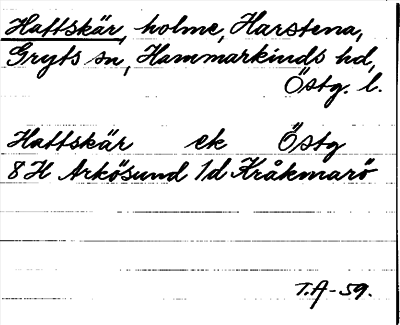 Hattskär, holme, Harstena,
Gryts sn, Hammarkinds hd,
Östg. l.
Hattskär ek Östg
8H Arkösund 1d Kråkmarö
T.A-59.